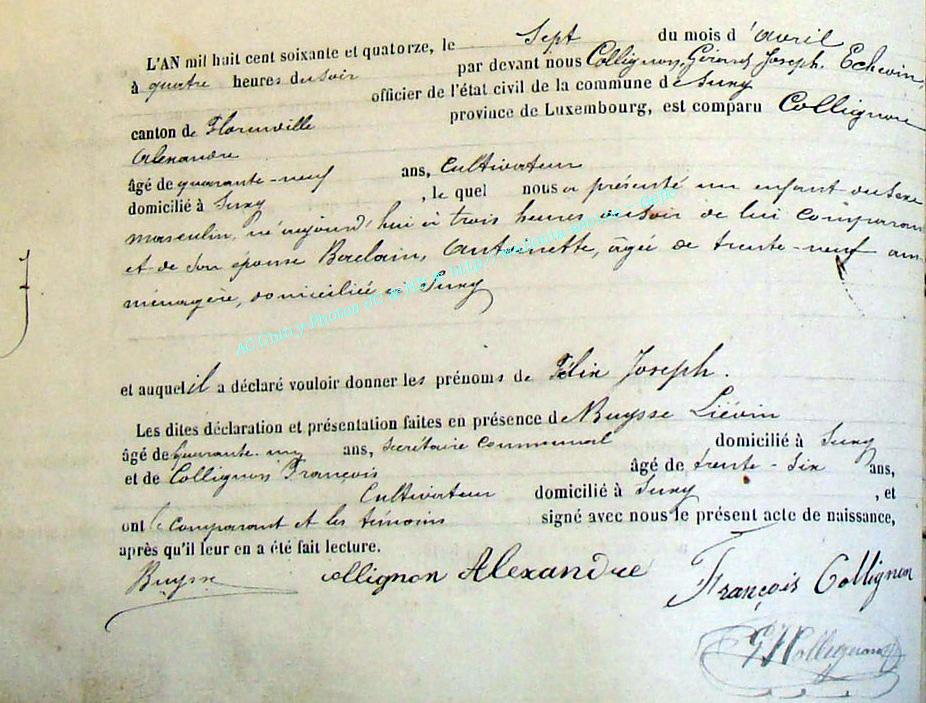 L'AN mil huit cent soixante et quatorze, le Sept du mois d'avril
à quatre heures du soir par devant nous Collignon, Gérard Joseph, Echevin,
officier de l'état civil de la commune de Suny
canton de Florenville province de Luxembourg, est comparu Collignon
Alexandre
âgé de quarante-neuf ans, Cultivateur
domicilié à Suny, le quel nous a présenté un enfant du sexe
masculin, né aujourd'hui à trois heures du soir de lui comparant
et de son épouse Antoinette, âgée de trente-neuf ans
ménagère, domiciliée à Suny
et auquel il a déclaré vouloir donner les prénoms de Félix Joseph.
Les dites déclaration et présentation faites en présence de Buysse Liévin
âgé de quarante-un ans, Secrétaire Communal domicilié à Suny
et de Collignon François âgé de trente-six ans,
Cultivateur domicilié à Suny, et
ont le comparant et les témoins signé avec nous le présent acte de naissance,
après qu'il leur en a été fait lecture.
Buysse Collignon Alexandre François Collignon
GJCollignon